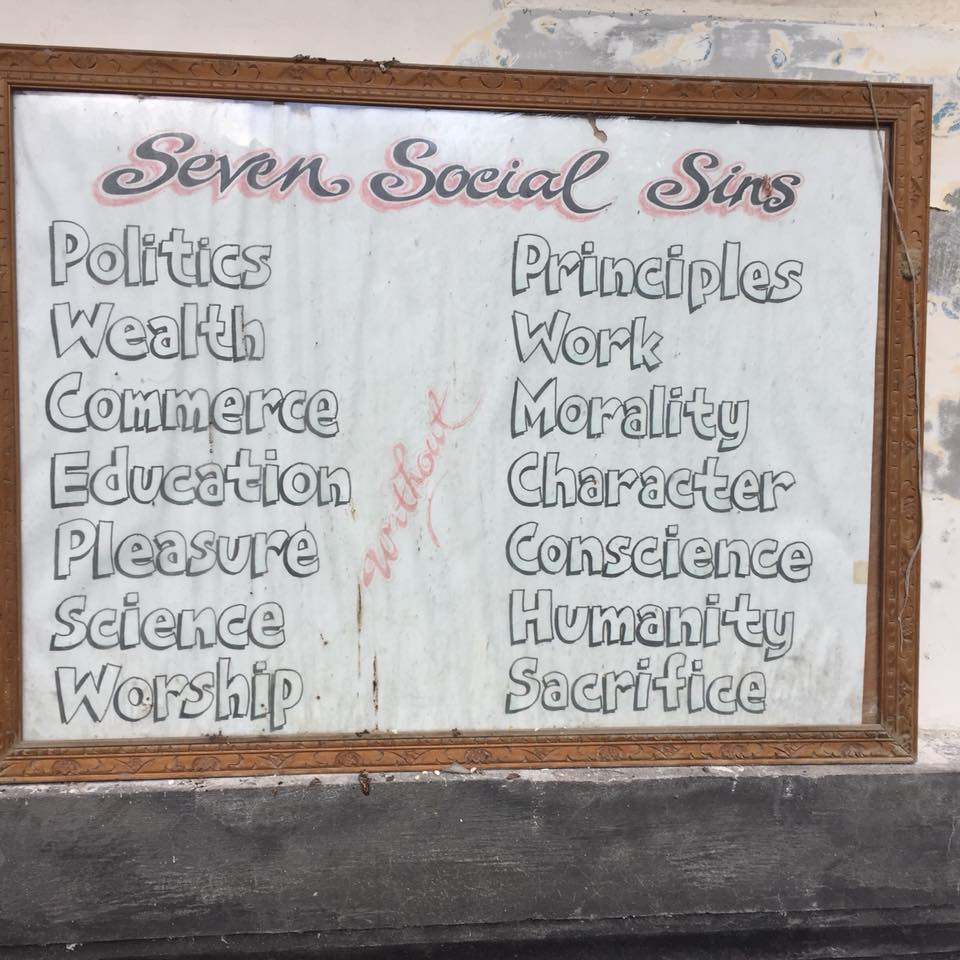 Seven Social Sins
Politics Principles
Wealth Work
Commerce Morality
without
Education Character
Pleasure Conscience
Science Humanity
Worship Sacrifice